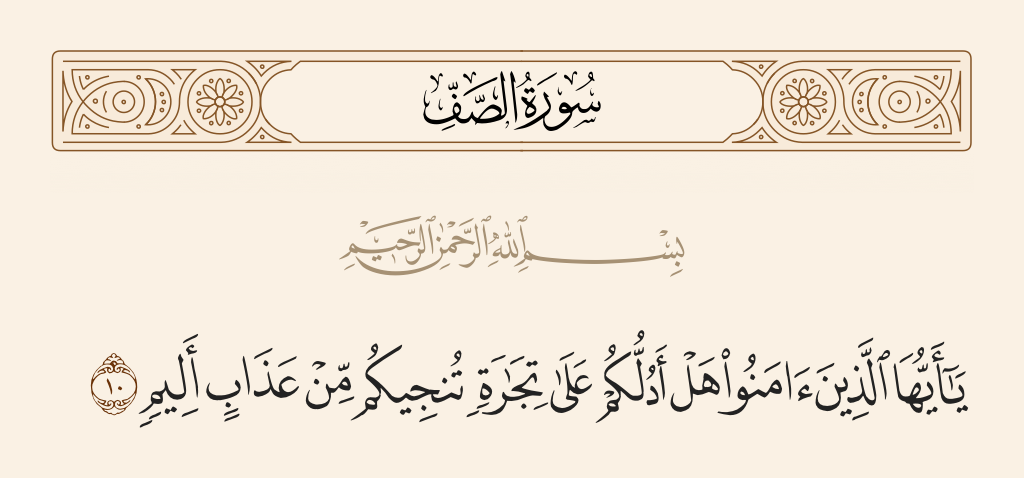 سُورَةُ الصَّفِّ
بِسْمِ ٱللَّهِ ٱلرَّحْمَٰنِ ٱلرَّحِيمِ
يَٰٓأَيُّهَا ٱلَّذِينَ ءَامَنُوا۟ هَلْ أَدُلُّكُمْ عَلَىٰ تِجَٰرَةٍ تُنجِيكُم مِّنْ عَذَابٍ أَلِيمٍ ١٠